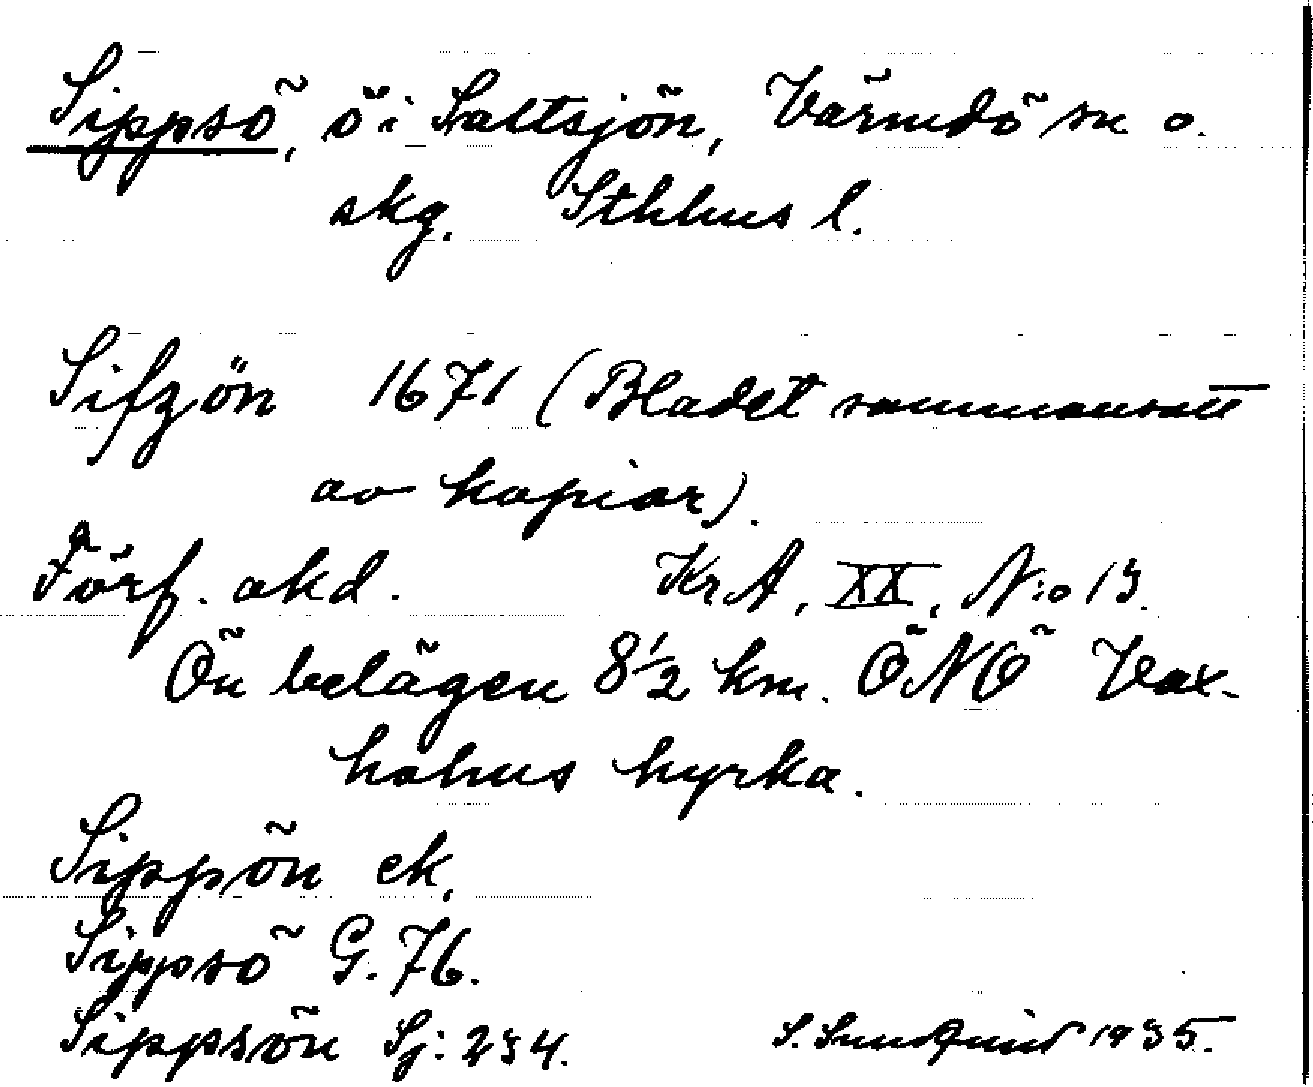 Sippsö, ö i Saltsjön, Värmdö sn o.
skg. Sthlms l.
Sifzön 1671 (Bladet sammansatt
av kopior).
Förf. akd. KrA, XX, N:o 13.
Ön belägen 8 1/2 km. ÖNÖ Vax-
holms kyrka.
Sippön ek.
Sippsö G. 76.
Sippsön Sj: 234.
S. Sundquist 1935.